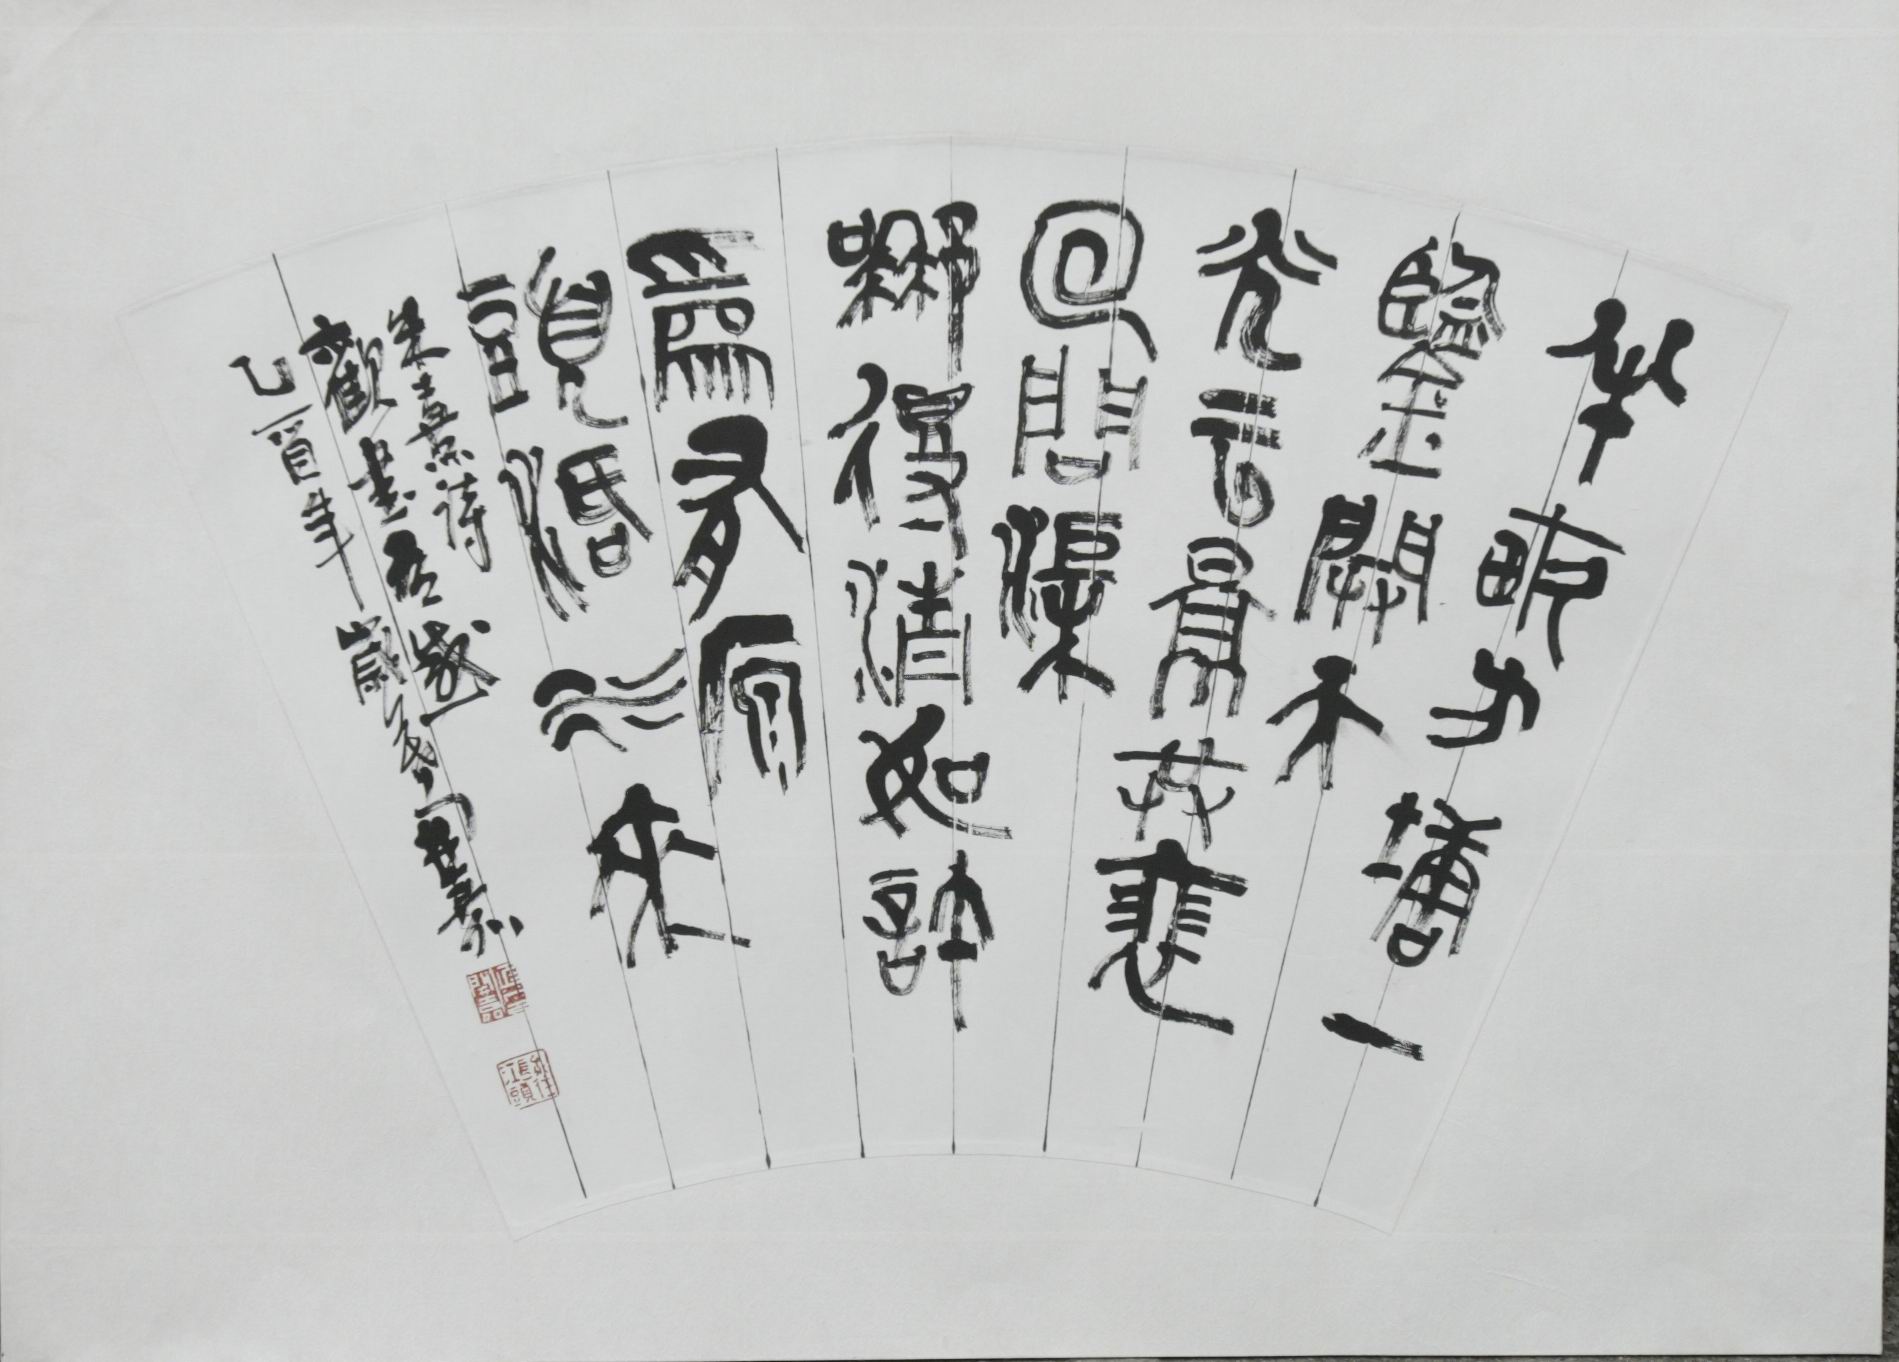 半畝方塘一
鑒開天
光云景共裴
回問渠
那得清如許
爲有原
頭活水來
朱熹詩
觀書有感
乙酉年歲